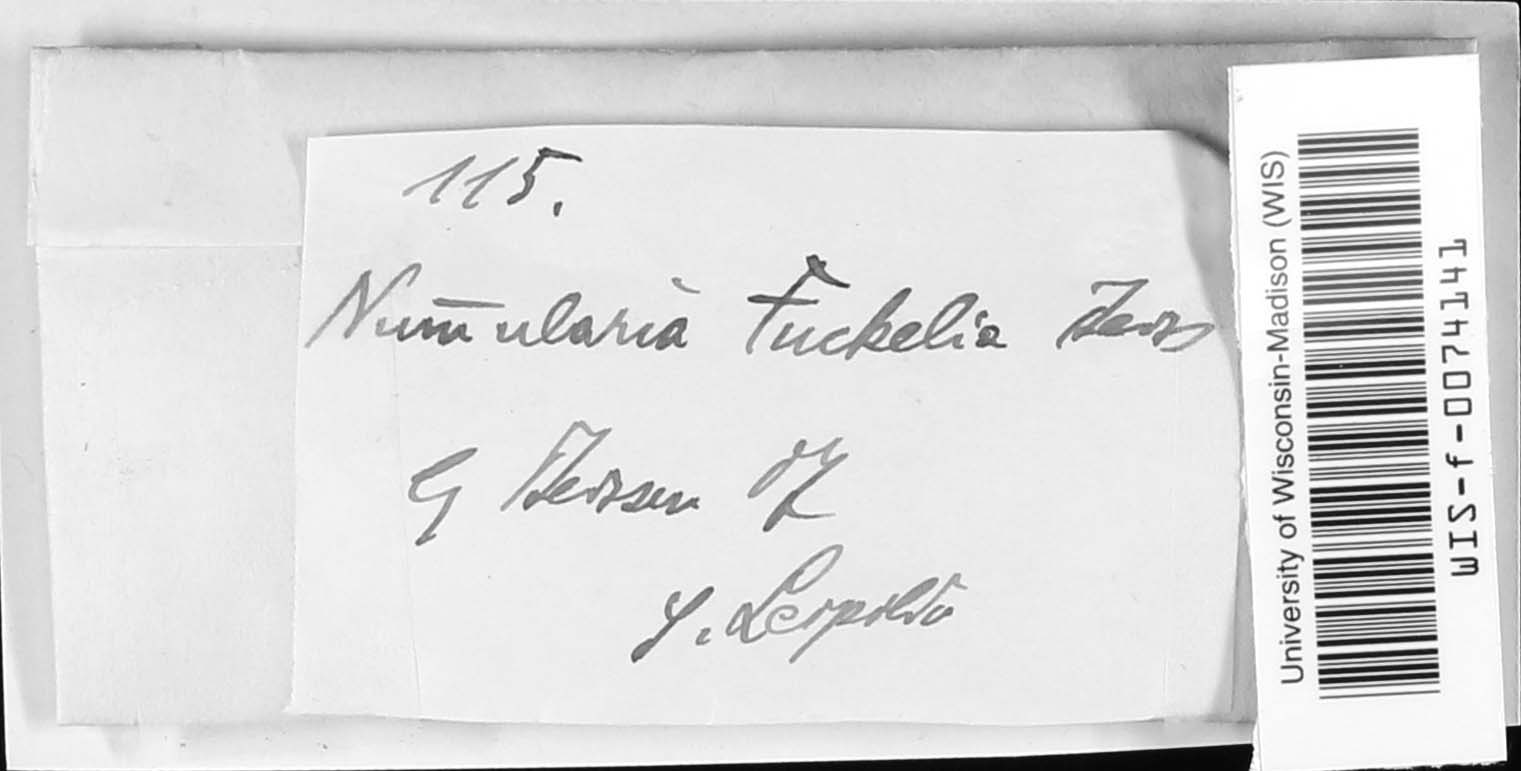 115.
Num̄ularia Fuckelia
G
S. Leopoldo
University of Wisconsin-Madison (WIS)
WIS-f-0074141